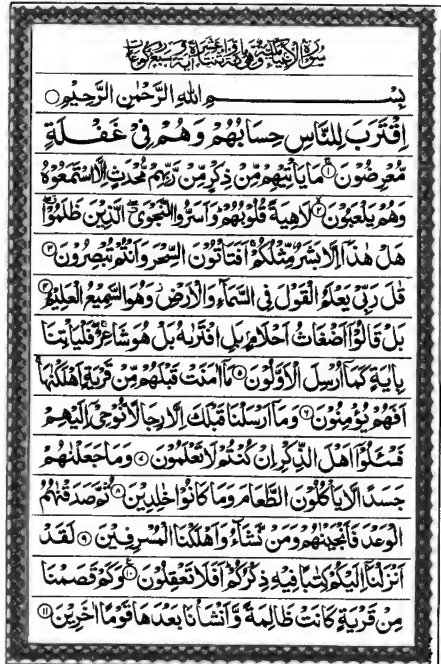 سورة الانبیاء مکیة وهی مائة واثنتا عشرة ایة وسبع رکوعات
بِسْمِ اللهِ الرَّحْمٰنِ الرَّحِيْمِ
اِقْتَرَبَ لِلنَّاسِ حِسَابُهُمْ وَهُمْ فِيْ غَفْلَةٍ
مُّعْرِضُوْنَ ۱ مَا يَاْتِيْهِمْ مِّنْ ذِكْرٍ مِّنْ رَّبِّهِمْ مُّحْدَثٍ اِلَّا اسْتَمَعُوْهُ
وَهُمْ يَلْعَبُوْنَ ۲ لَاهِيَةً قُلُوْبُهُمْ وَاَسَرُّوا النَّجْوَى الَّذِيْنَ ظَلَمُوْا
هَلْ هٰذَآ اِلَّا بَشَرٌ مِّثْلُكُمْ اَفَتَاْتُوْنَ السِّحْرَ وَاَنْتُمْ تُبْصِرُوْنَ ۳
قٰلَ رَبِّيْ يَعْلَمُ الْقَوْلَ فِي السَّمَآءِ وَالْاَرْضِ وَهُوَ السَّمِيْعُ الْعَلِيْمُ ۴
بَلْ قَالُوْٓا اَضْغَاثُ اَحْلَامٍۭ بَلِ افْتَرٰىهُ بَلْ هُوَ شَاعِرٌ فَلْيَاْتِنَا
بِاٰيَةٍ كَمَآ اُرْسِلَ الْاَوَّلُوْنَ ۵ مَآ اٰمَنَتْ قَبْلَهُمْ مِّنْ قَرْيَةٍ اَهْلَكْنٰهَا
اَفَهُمْ يُؤْمِنُوْنَ ۶ وَمَآ اَرْسَلْنَا قَبْلَكَ اِلَّا رِجَالًا نُّوْحِيْٓ اِلَيْهِمْ
فَسْـَٔلُوْٓا اَهْلَ الذِّكْرِ اِنْ كُنْتُمْ لَا تَعْلَمُوْنَ ۷ وَمَا جَعَلْنٰهُمْ
جَسَدًا لَّا يَاْكُلُوْنَ الطَّعَامَ وَمَا كَانُوْا خٰلِدِيْنَ ۸ ثُمَّ صَدَقْنٰهُمُ
الْوَعْدَ فَاَنْجَيْنٰهُمْ وَمَنْ نَّشَآءُ وَاَهْلَكْنَا الْمُسْرِفِيْنَ ۹ لَقَدْ
اَنْزَلْنَآ اِلَيْكُمْ كِتٰبًا فِيْهِ ذِكْرُكُمْ اَفَلَا تَعْقِلُوْنَ ۱۰ وَكَمْ قَصَمْنَا
مِنْ قَرْيَةٍ كَانَتْ ظَالِمَةً وَّاَنْشَاْنَا بَعْدَهَا قَوْمًا اٰخَرِيْنَ ۱۱